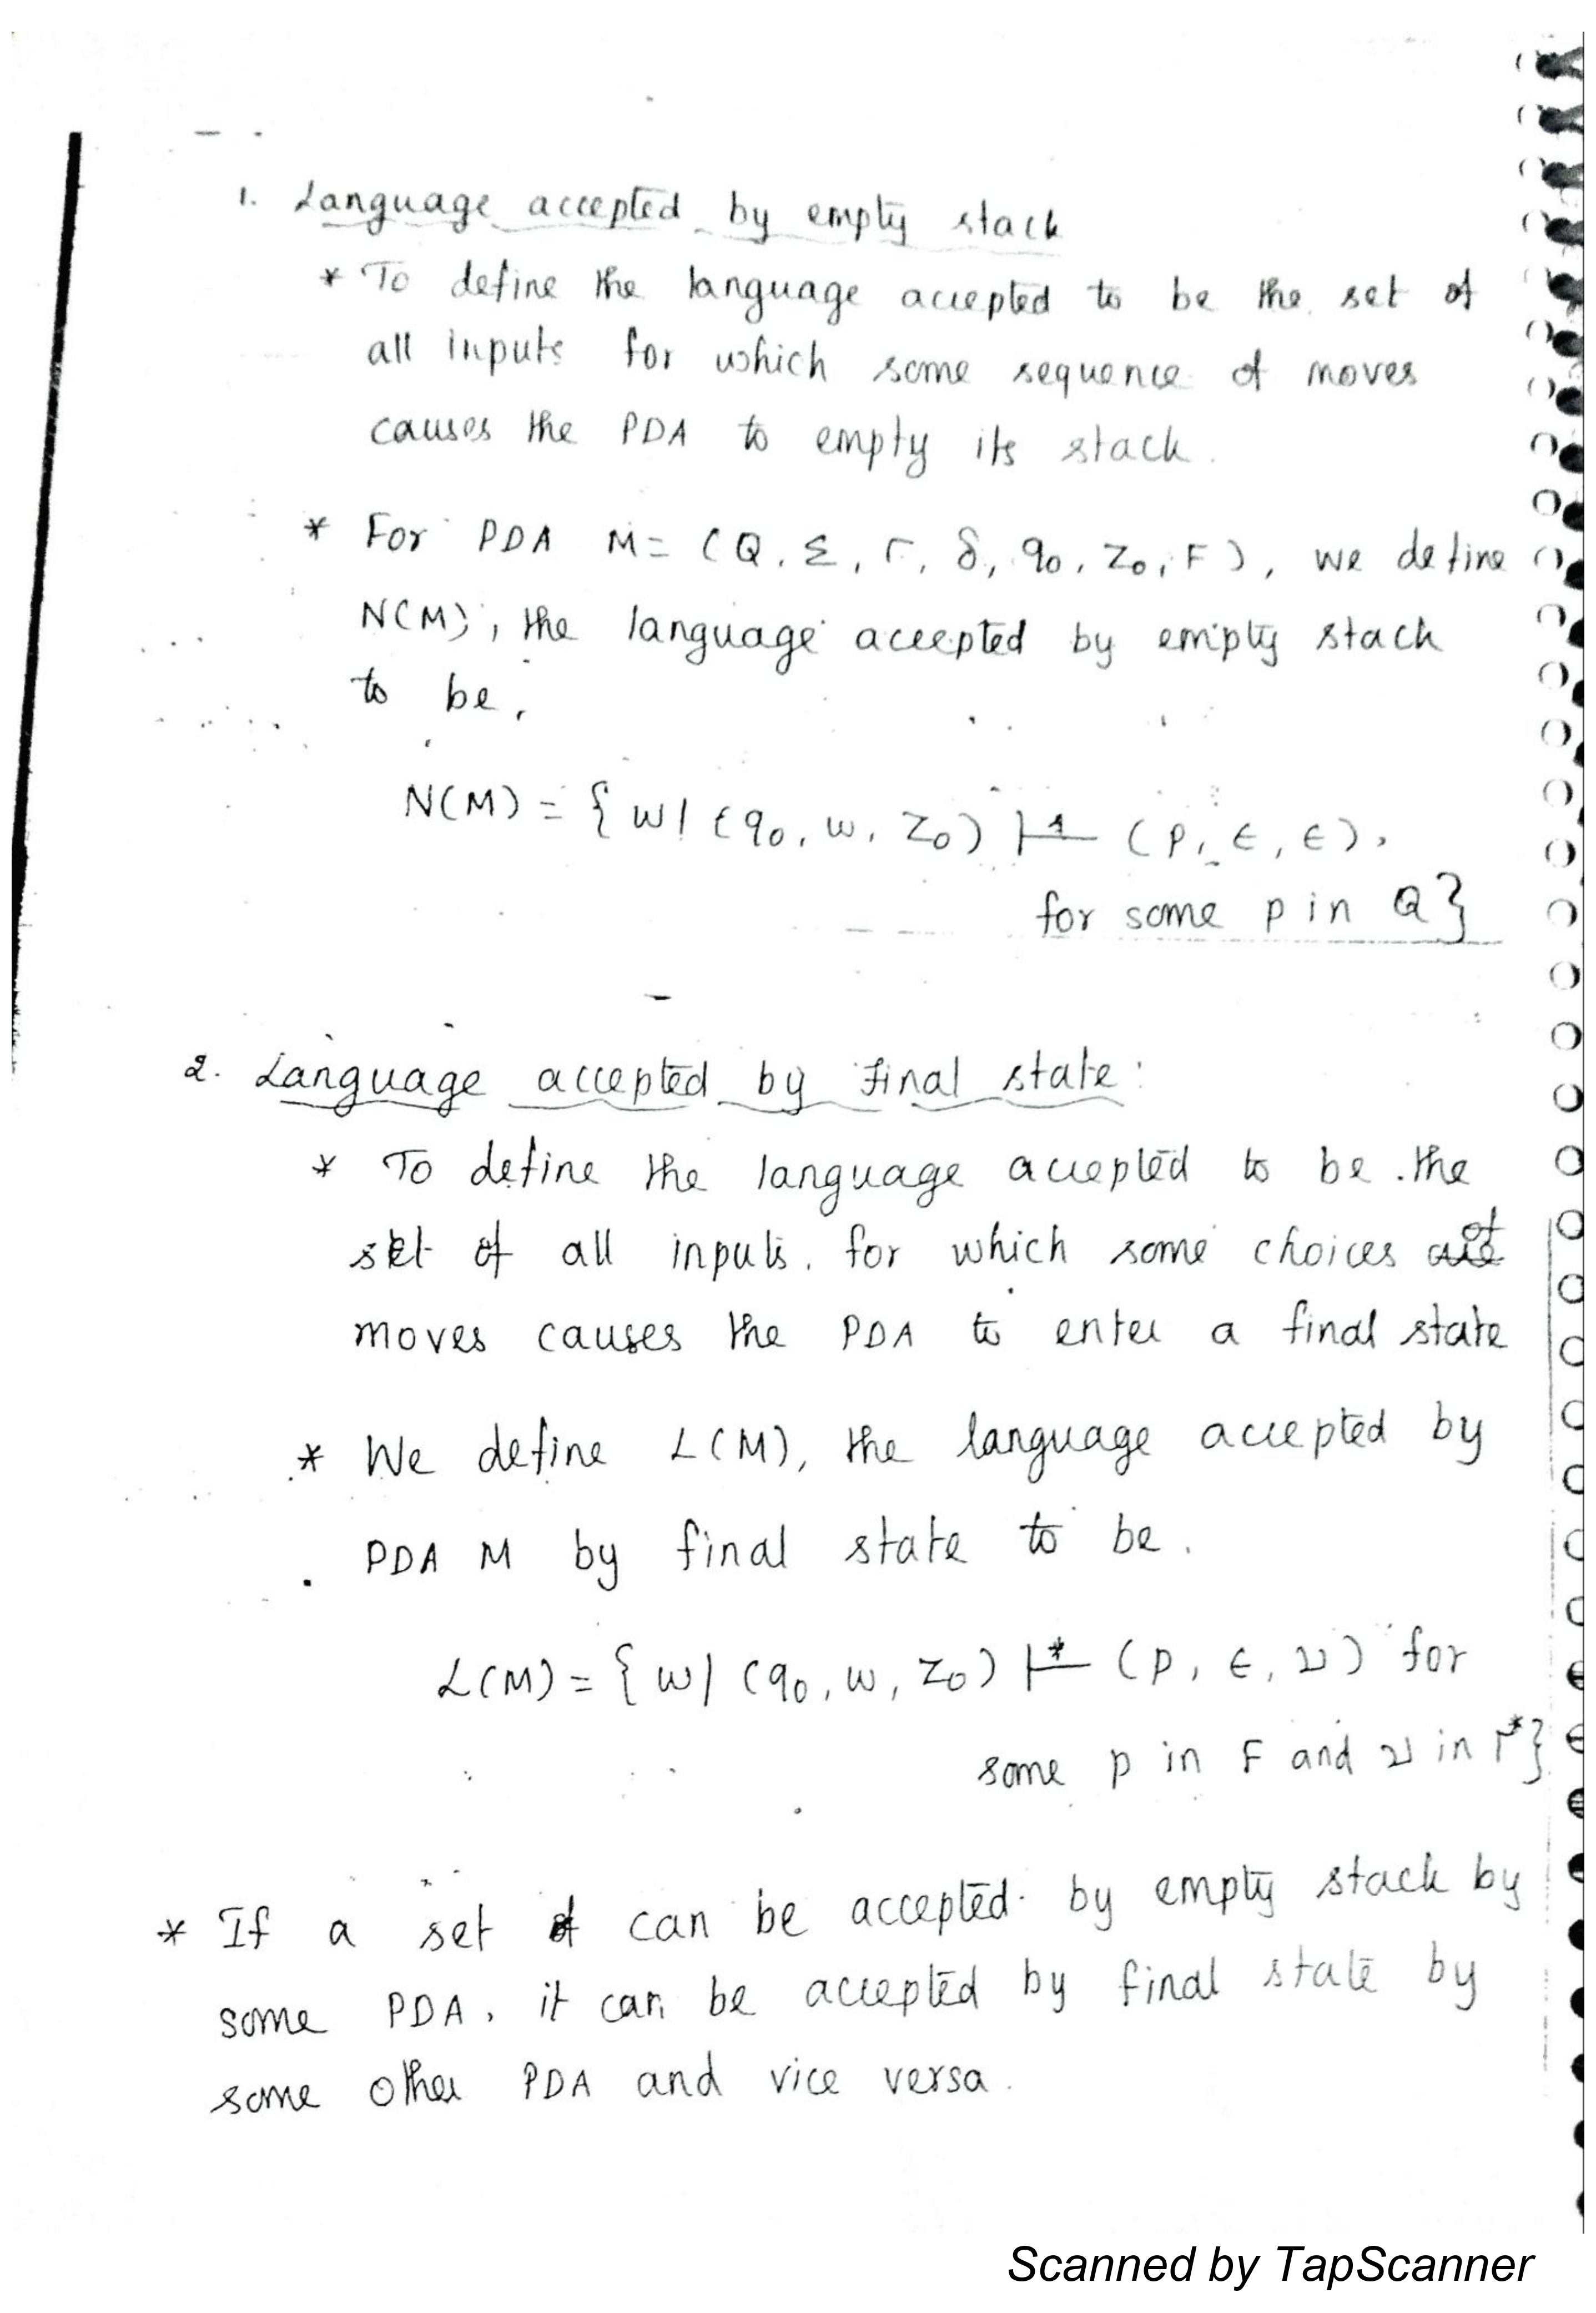 1. Language accepted by empty stack
* To define the language accepted to be the set of
all inputs for which some sequence of moves
causes the PDA to empty its stack.
* For PDA M = (Q, Σ, Γ, δ, q₀, Z₀, F), we define
N(M), the language accepted by empty stack
to be,
N(M) = { w / (q₀, w, Z₀) |-* (p, ϵ, ϵ),
for some p in Q}
2. Language accepted by final state:
* To define the language accepted to be the
set of all inputs for which some choices of
moves causes the PDA to enter a final state
* We define L(M), the language accepted by
PDA M by final state to be.
L(M) = { w / (q₀, w, Z₀) |-* (p, ϵ, ν) for
some p in F and ν in Γ*}
* If a set can be accepted by empty stack by
some PDA, it can be accepted by final state by
some other PDA and vice versa.
Scanned by TapScanner